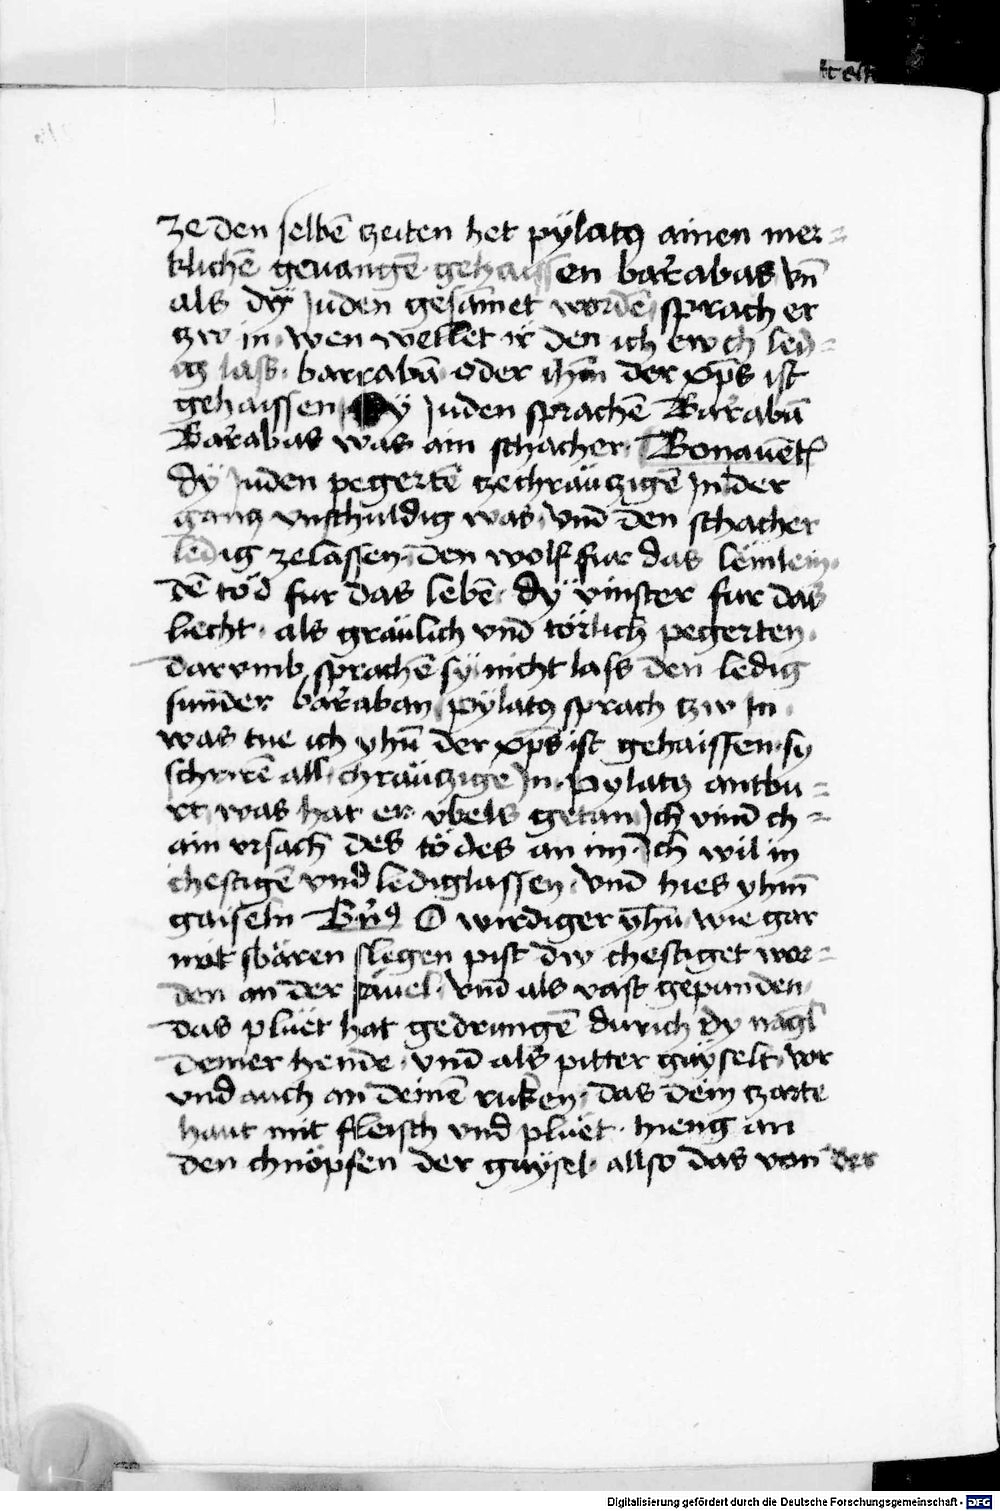 ze den selbē tzeiten het pÿlatꝰ ainen mer-
klichē geuangē gehaissen bar̄abas vn̄
als dÿ Juden gesāmet wordē sprach er
tzw in · wen wellet ir den ich ewch led-
ig lass · barrabā oder ihm̄ der xp̄s ist
gehaissen · Dy Juden sprachē Bar̄abā
Bar̄abas was ain schacher · Bonauēt
dÿ Juden pegertē tzechräutzigē In der
gantz vnschuldig was · vnd den schacher
ledig zelassen · den wolf fur das lēmlein ·
dē tod fur das lebē · dÿ vinster fur das
liecht · als gräulich vnd törlich pegerten ·
darvmb sprachē sÿ nicht lass den ledig
sunder bar̄aban · pÿlatꝰ sprach tzw In ·
was tue ich yhū der xp̄s ist gehaissen · sy
schrirē all · chräutzige In · Pylatꝰ antbu-
rt was hat er vbels getan Ich vind ch-
ain vrsach des todes an im · Ich wil in
chestigē vnd lediglassen · vnd hies yhm̄
gaiseln Bern̄ꝰ O wirdiger yhū wie gar
mit sbären slegen pist dw chestiget wor-
den an der säuel · vnd als vast gepunden ·
das pluet hat gedrungē durich dy nagl
deiner hende · vnd als pitter gaÿselt · vor
vnd auch an deinē ruken · das dein tzarte
haut mit fleisch vnd pluet · hieng an
den chnöpfen der gaÿsel · allso das von der
Digitalisierung gefördert durch die Deutsche Forschungsgemeinschaft - DFG